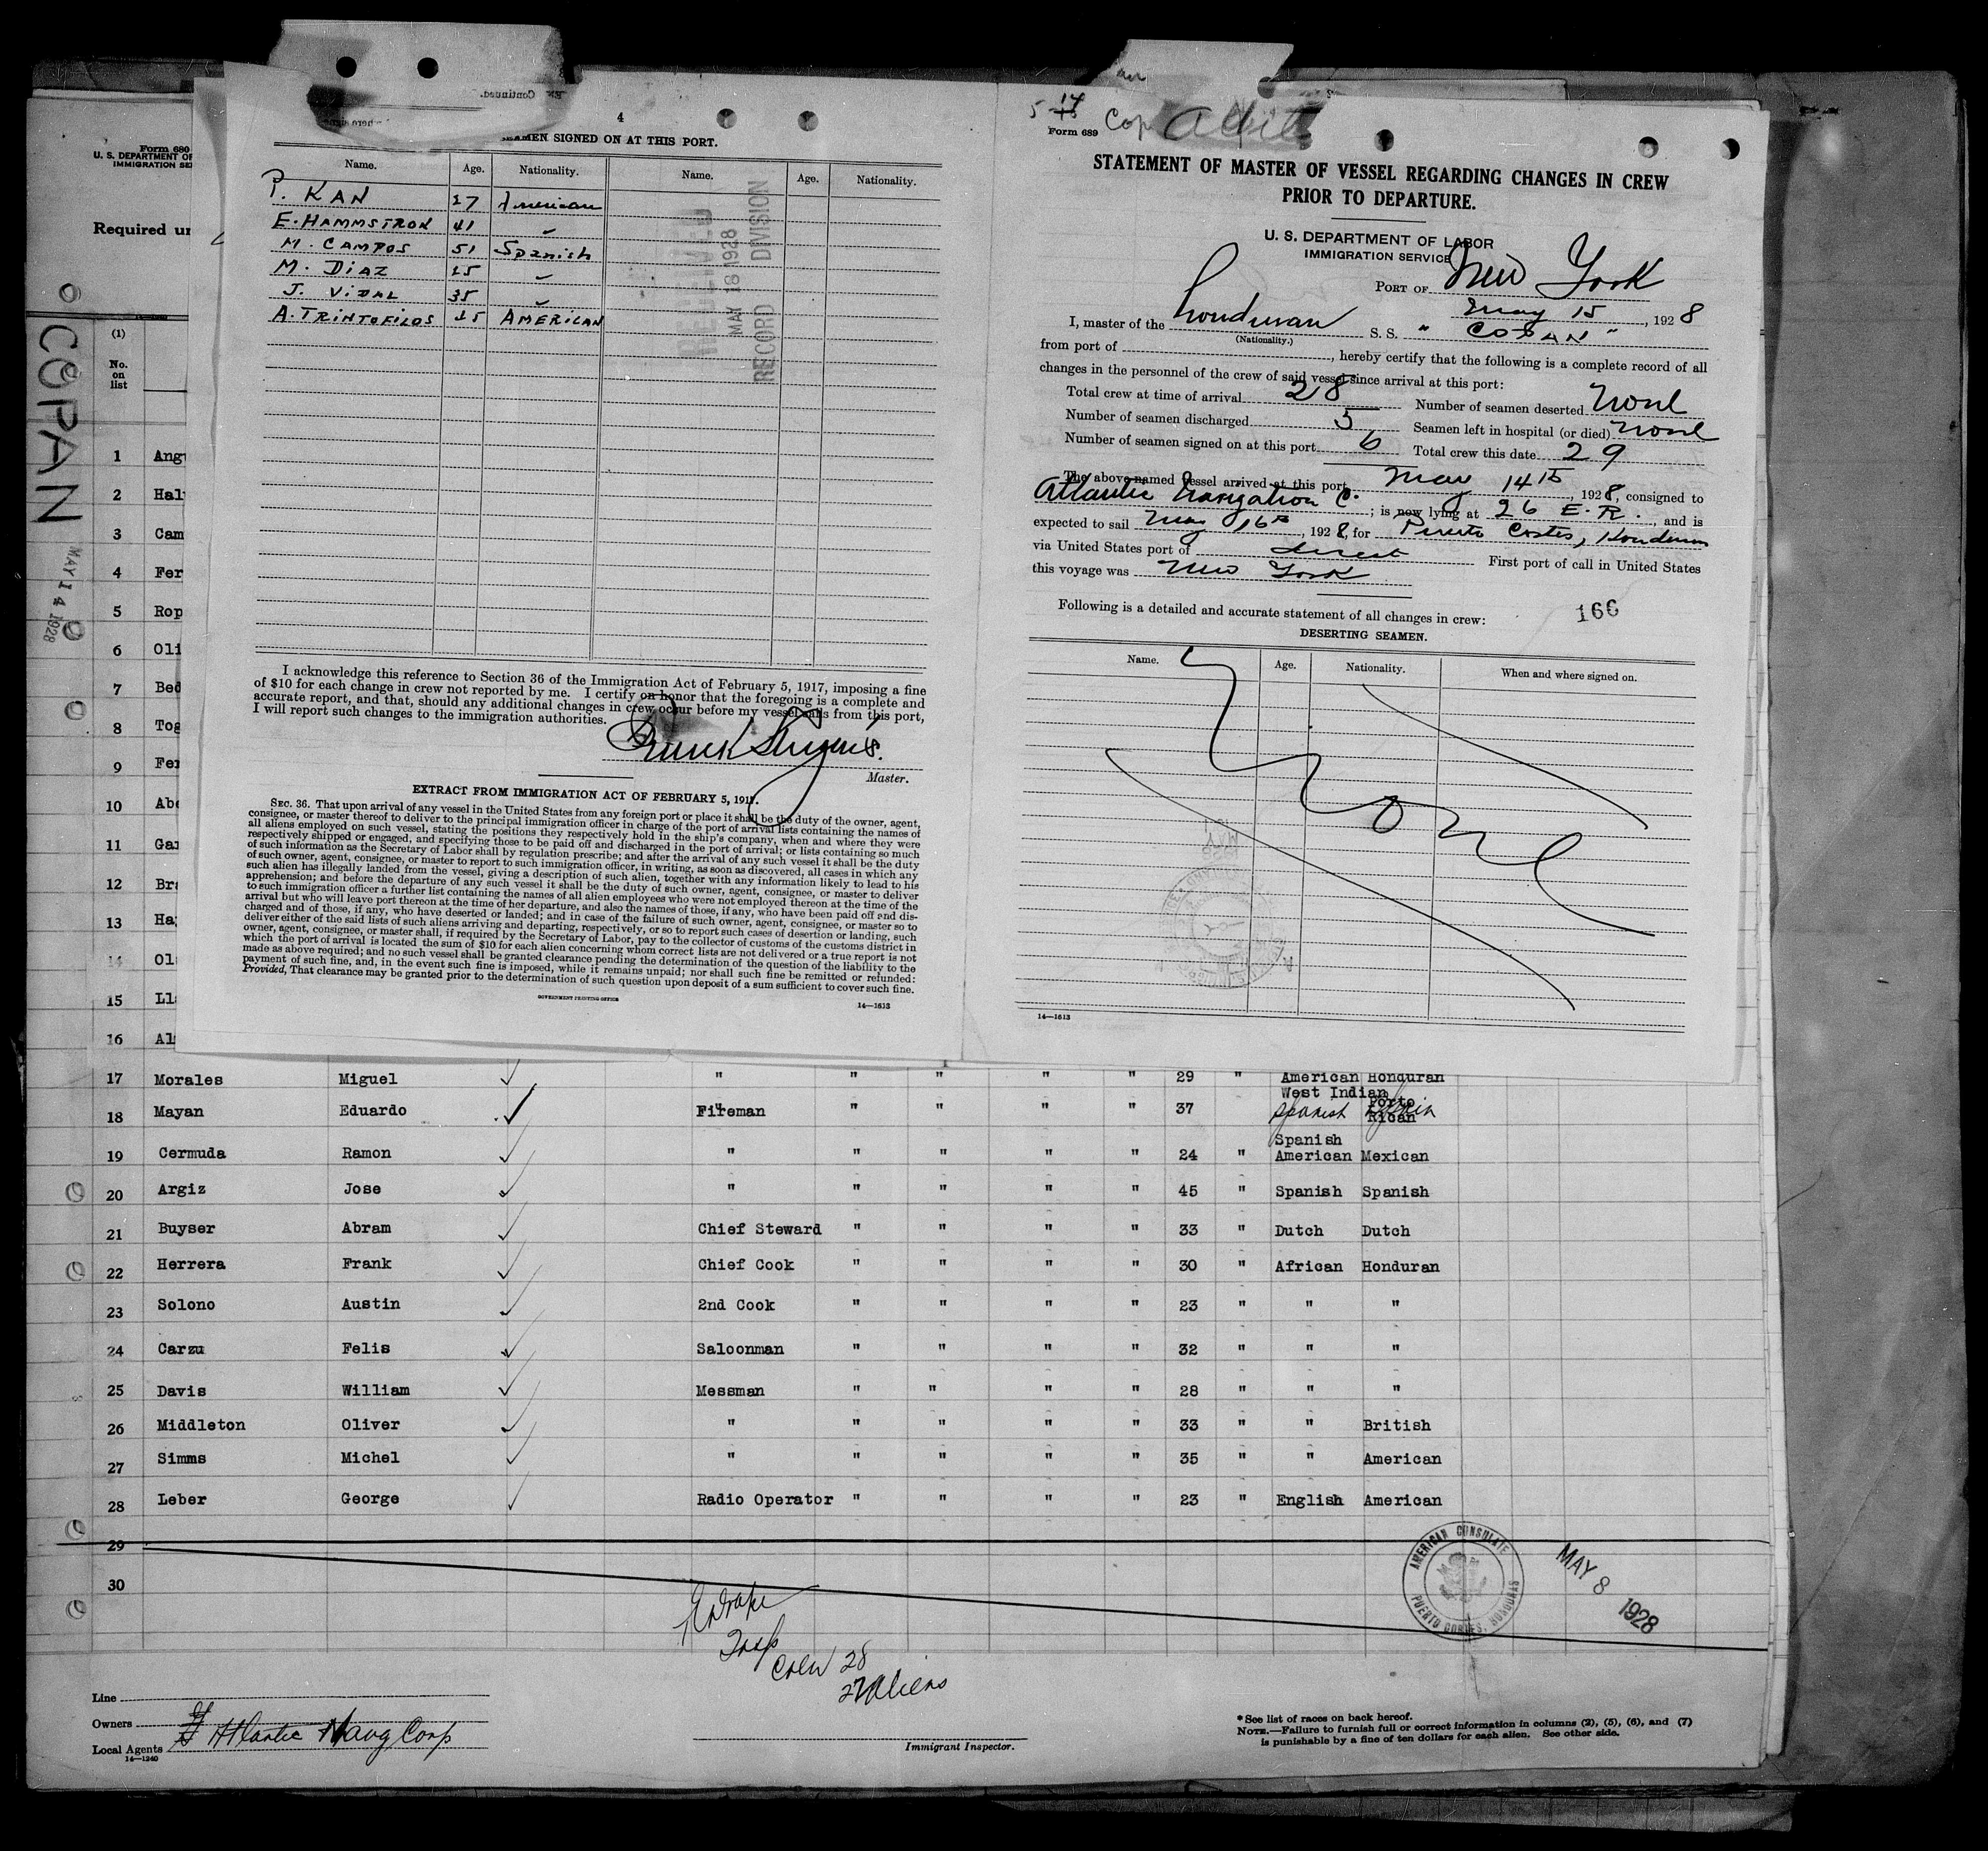 EN Continued.
4
SEAMEN SIGNED ON AT THIS PORT.
Name. Age. Nationality. Name. Age. Nationality.
P. KAN 27 American
E. HAMMSTROM 41 "
M. CAMPOS 51 Spanish
M. DIAZ 25 "
J. VIDAL 35 "
A. TRINTOFILOS 25 AMERICAN
RECEIVED
MAY 18 1928
RECORD DIVISION
I acknowledge this reference to Section 36 of the Immigration Act of February 5, 1917, imposing a fine
of $10 for each change in crew not reported by me. I certify on honor that the foregoing is a complete and
accurate report, and that, should any additional changes in crew occur before my vessel sails from this port,
I will report such changes to the immigration authorities.
Master.
EXTRACT FROM IMMIGRATION ACT OF FEBRUARY 5, 1917.
SEC. 36. That upon arrival of any vessel in the United States from any foreign port or place it shall be the duty of the owner, agent,
consignee, or master thereof to deliver to the principal immigration officer in charge of the port of arrival lists containing the names of
all aliens employed on such vessel, stating the positions they respectively hold in the ship's company, when and where they were
respectively shipped or engaged, and specifying those to be paid off and discharged in the port of arrival; or lists containing so much
of such information as the Secretary of Labor shall by regulation prescribe; and after the arrival of any such vessel it shall be the duty
of such owner, agent, consignee, or master to report to such immigration officer, in writing, as soon as discovered, all cases in which any
such alien has illegally landed from the vessel, giving a description of such alien, together with any information likely to lead to his
apprehension; and before the departure of any such vessel it shall be the duty of such owner, agent, consignee, or master to deliver
to such immigration officer a further list containing the names of all alien employees who were not employed thereon at the time of the
arrival but who will leave port thereon at the time of her departure, and also the names of those, if any, who have been paid off and dis-
charged and of those, if any, who have deserted or landed; and in case of the failure of such owner, agent, consignee, or master so to
deliver either of the said lists of such aliens arriving and departing, respectively, or so to report such cases of desertion or landing, such
owner, agent, consignee, or master shall, if required by the Secretary of Labor, pay to the collector of customs of the customs district in
which the port of arrival is located the sum of $10 for each alien concerning whom correct lists are not delivered or a true report is not
made as above required; and no such vessel shall be granted clearance pending the determination of the question of the liability to the
payment of such fine, and, in the event such fine is imposed, while it remains unpaid; nor shall such fine be remitted or refunded:
Provided, That clearance may be granted prior to the determination of such question upon deposit of a sum sufficient to cover such fine.
GOVERNMENT PRINTING OFFICE
14—1613
Form 689
STATEMENT OF MASTER OF VESSEL REGARDING CHANGES IN CREW
PRIOR TO DEPARTURE.
U. S. DEPARTMENT OF LABOR
IMMIGRATION SERVICE
PORT OF New York
May 15, 1928
I, master of the Honduran S. S. "COPAN"
(Nationality.)
from port of , hereby certify that the following is a complete record of all
changes in the personnel of the crew of said vessel since arrival at this port:
Total crew at time of arrival 28 Number of seamen deserted None
Number of seamen discharged 5 Seamen left in hospital (or died) None
Number of seamen signed on at this port 6 Total crew this date 29
The above-named vessel arrived at this port May 14th, 1928, consigned to
Atlantic Navigation C. ; is now lying at 26 E. R., and is
expected to sail May 16th, 1928, for Puerto Cortes, Honduras
via United States port of direct First port of call in United States
this voyage was New York
Following is a detailed and accurate statement of all changes in crew:
166
DESERTING SEAMEN.
Name. Age. Nationality. When and where signed on.
None
14—1613
Form 680
U. S. DEPARTMENT OF
IMMIGRATION SE
Required un
COPAN
MAY 14 1928
(1)
No.
on
list
1 Ang
2 Hal
3 Cam
4 Fer
5 Rop
6 Oli
7 Bed
8 Tog
9 Fer
10 Abe
11 Gar
12 Bra
13 Ha
14 Ol
15 Ll
16 Al
17 Morales Miguel " " " " " 29 " American Honduran
West Indian Porto
18 Mayan Eduardo Fireman " " " " 37 Spanish Rican
Spanish
19 Cermuda Ramon " " " " " 24 " American Mexican
20 Argiz Jose " " " " " 45 " Spanish Spanish
21 Buyser Abram Chief Steward " " " " 33 " Dutch Dutch
22 Herrera Frank Chief Cook " " " " 30 " African Honduran
23 Solono Austin 2nd Cook " " " " 23 " " "
24 Carzu Felis Saloonman " " " " 32 " " "
25 Davis William Messman " " " " 28 " " "
26 Middleton Oliver " " " " " 33 " " British
27 Simms Michel " " " " " 35 " " American
28 Leber George Radio Operator " " " " 23 " English American
29
30
AMERICAN CONSULATE
PUERTO CORTES, HONDURAS
MAY 8 1928
Insp
Crew 28
27 Aliens
Line
Owners
Local Agents Atlantic Navg Corp
14—1240
Immigrant Inspector.
* See list of races on back hereof.
NOTE.—Failure to furnish full or correct information in columns (2), (5), (6), and (7)
is punishable by a fine of ten dollars for each alien. See other side.